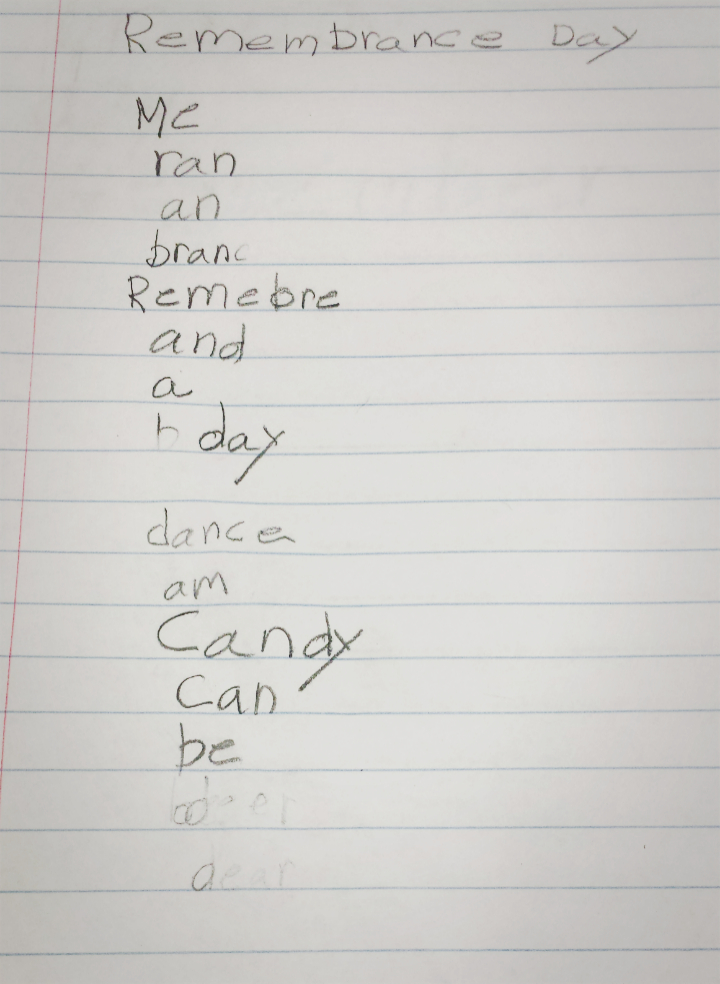 Remembrance Day
Me
ran
an
branc
Remebre
and
a
h day
dance
am
Candy
Can
be
dear